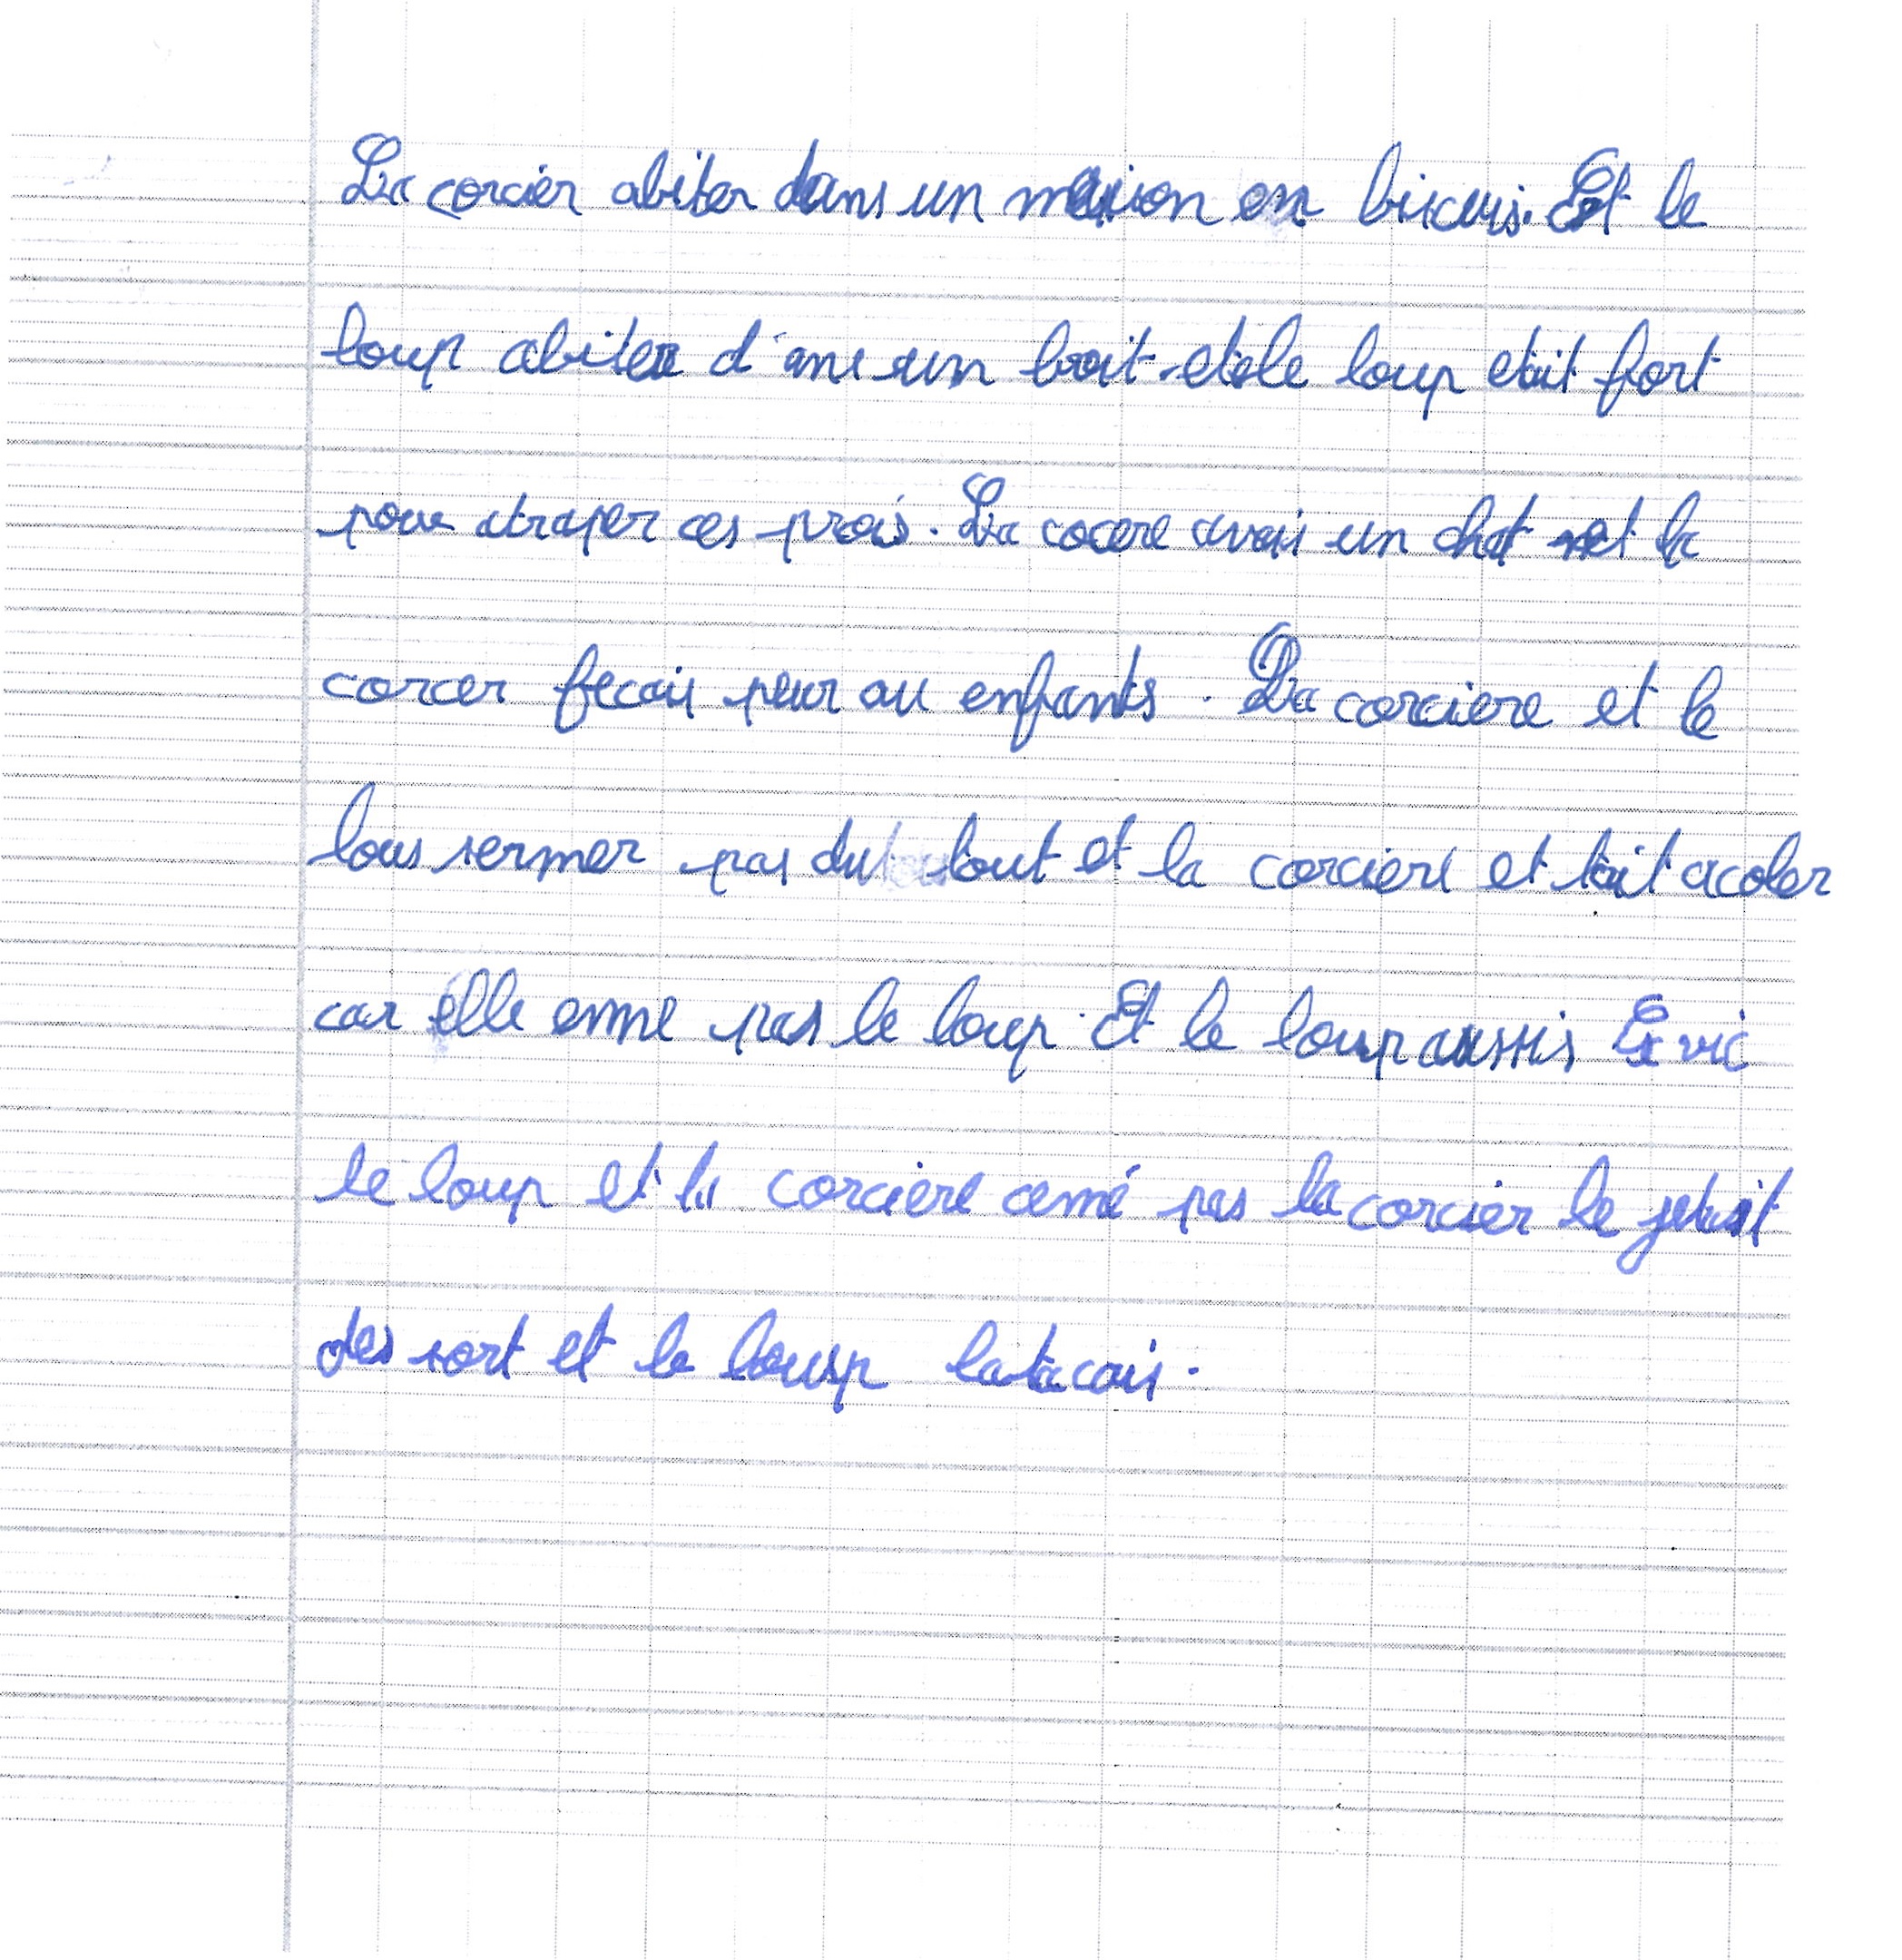 La corcier abiter dans un maison en biscuis. Et le
loup abiter d'ans un boit. et le loup etait fort
pour atraper ces prois. La cocere avais un chat et la
corcer fecais peur au enfants. La corciere et le
lous sermer pas du tout et la corciere et tait acoler
car elle emme pas le loup. Et le loup aussis La vie
le loup et la corciere cemé pas la corcier le jetait
des sort et le loup latacais.